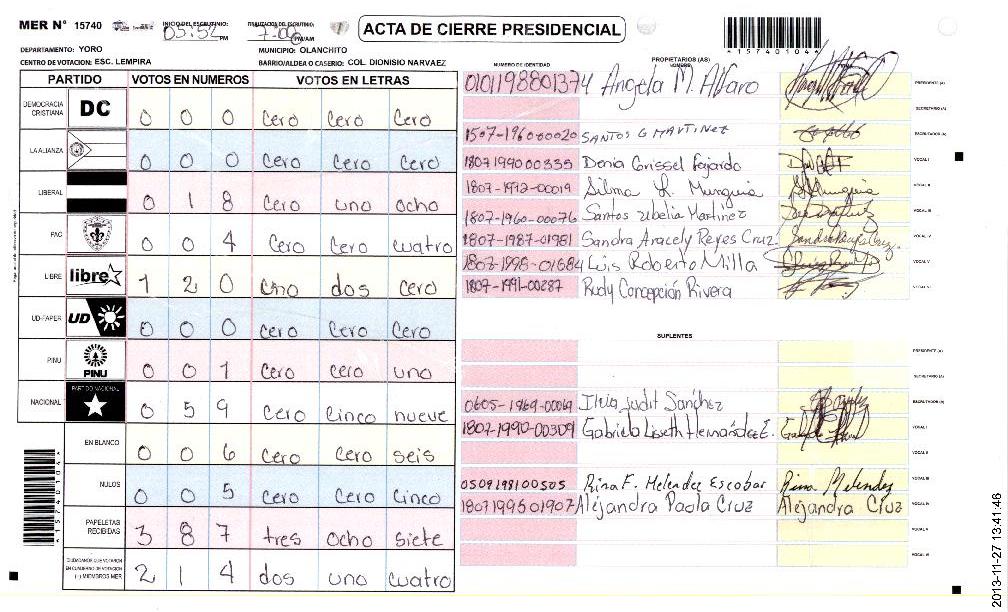 MER N° 15740 INICIO DEL ESCRUTINIO: 05:52 PM FINALIZACION DEL ESCRUTINIO: 7:00 PM/AM ACTA DE CIERRE PRESIDENCIAL
*15740104*
DEPARTAMENTO: YORO MUNICIPIO: OLANCHITO
CENTRO DE VOTACION: ESC. LEMPIRA BARRIO/ALDEA O CASERIO: COL. DIONISIO NARVAEZ
PARTIDO VOTOS EN NUMEROS VOTOS EN LETRAS
DEMOCRACIA CRISTIANA DC 0 0 0 Cero Cero Cero
LA ALIANZA 0 0 0 Cero Cero Cero
LIBERAL 0 1 8 Cero uno ocho
PAC 0 0 4 Cero Cero cuatro
LIBRE libre 1 2 0 uno dos cero
UD-FAPER UD 0 0 0 Cero Cero Cero
PINU PINU 0 0 1 Cero cero uno
NACIONAL PARTIDO NACIONAL 0 5 9 Cero Cinco nueve
EN BLANCO 0 0 6 Cero Cero seis
NULOS 0 0 5 Cero Cero Cinco
PAPELETAS RECIBIDAS 3 8 7 tres ocho siete
CIUDADANOS QUE VOTARON EN CUADERNO DE VOTACION (-) MIEMBROS MER 2 1 4 dos uno cuatro
*15740104*
PROPIETARIOS (AS)
NUMERO DE IDENTIDAD NOMBRE
0101198801374 Angela M. Alfaro PRESIDENTE (A)
SECRETARIO (A)
1507-1960-00020 SANTOS G MARTINEZ ESCRUTADOR (A)
1807199000335 Denia Grissel Fajardo VOCAL I
1807-1972-00019 Silma L. Munguia VOCAL II
1807-1960-00076 Santos ubelia Martinez VOCAL III
1807-1987-01981 Sandra Aracely Reyes Cruz. VOCAL IV
1807-1998-01684 Luis Roberto Milla VOCAL V
1807-1991-00287 Rudy Concepción Rivera VOCAL VI
SUPLENTES
PRESIDENTE (A)
SECRETARIO (A)
0605-1969-00069 Judit Sanchez ESCRUTADOR (A)
1807-1990-00309 Gabriela Liseth Hernández E. VOCAL I
VOCAL II
0509198100505 Rina F. Melendez Escobar Rina Melendez VOCAL III
1807199501907 Alejandra Paola Cruz Alejandra Cruz VOCAL IV
VOCAL V
VOCAL VI
2013-11-27 13:41:46